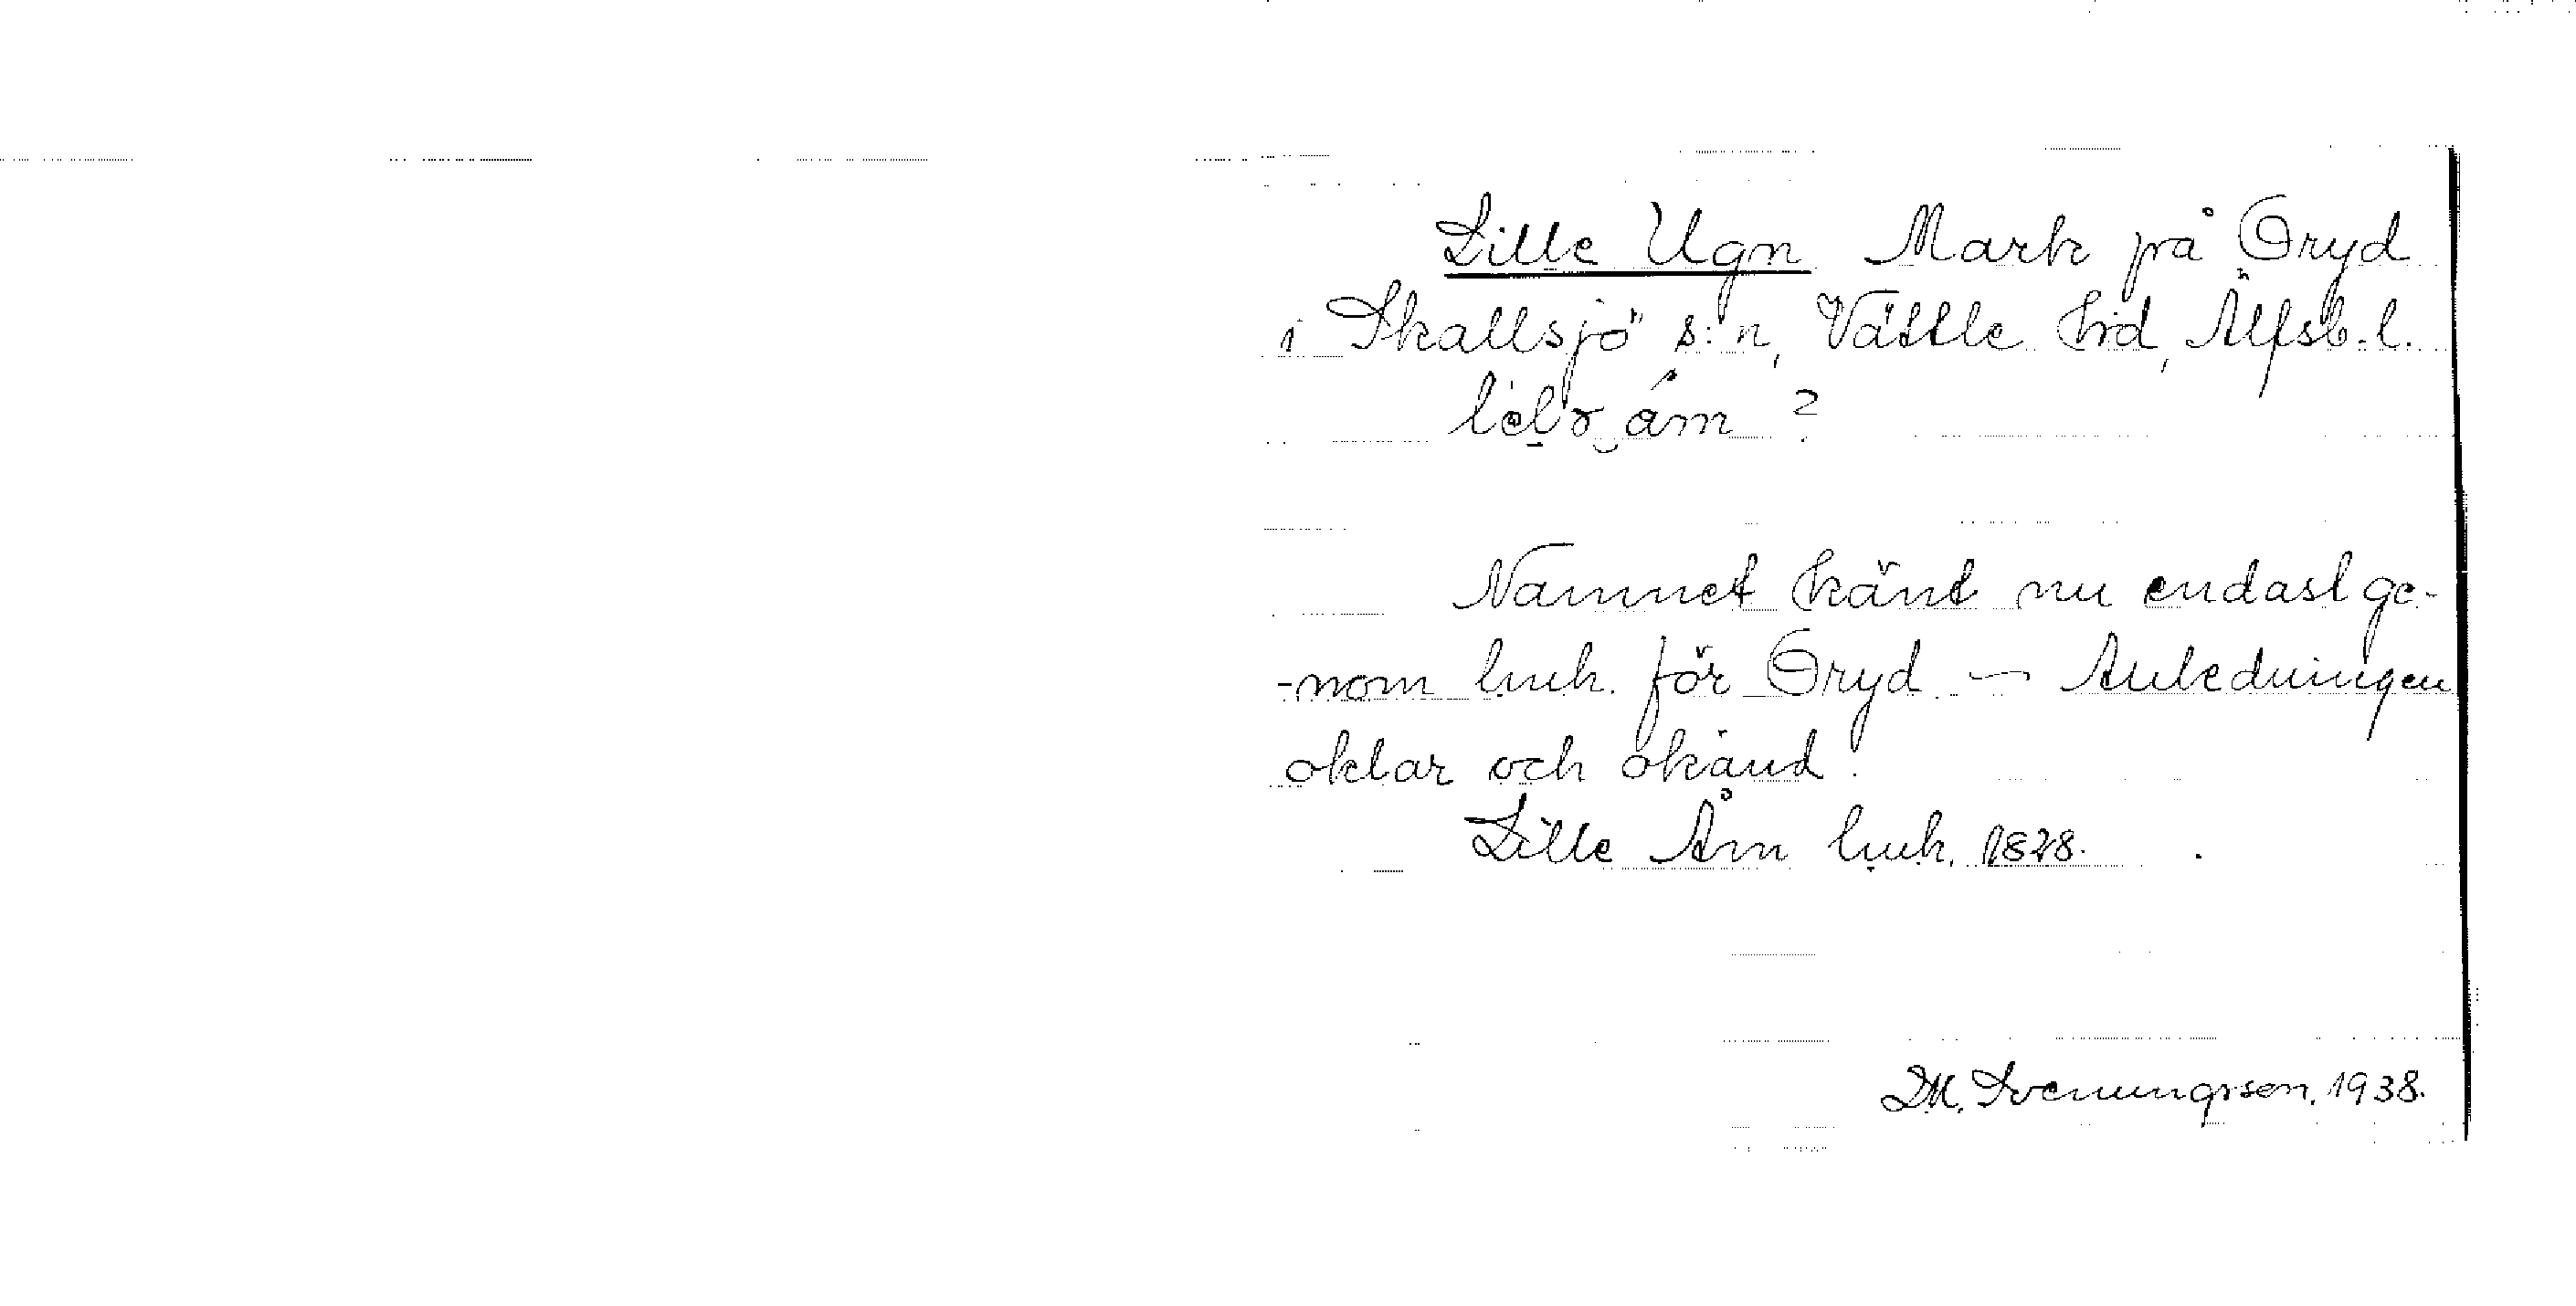 Lille Ugn Mark på Öryd
i Skallsjö s:n, Vättle hd, Älfsb. l.
Namnet känt nu endast ge-
-nom lmk. för Öryd — Anledningen
oklar och okänd.
Lille Åm lmk. 1828.
D.M. Svenungsson. 1938.